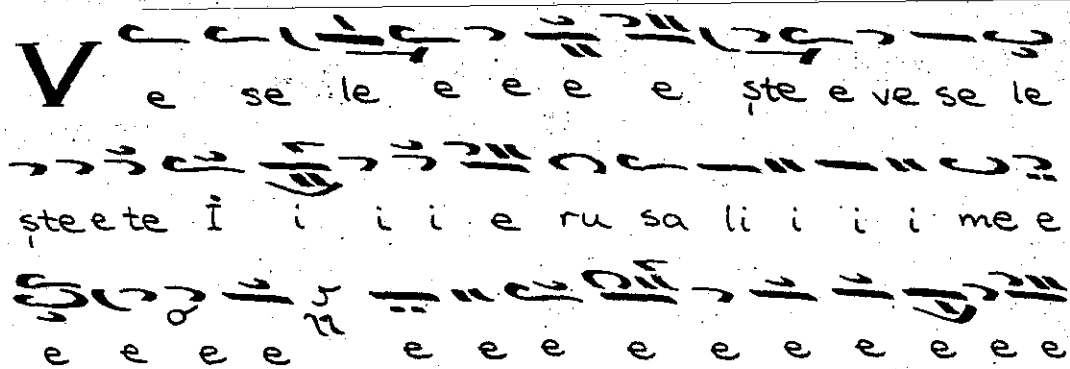 V e se le e e e e ște e ve se le
ște e te I i i i e ru sa li i i i me e
e e e e e e e e e e e e e e